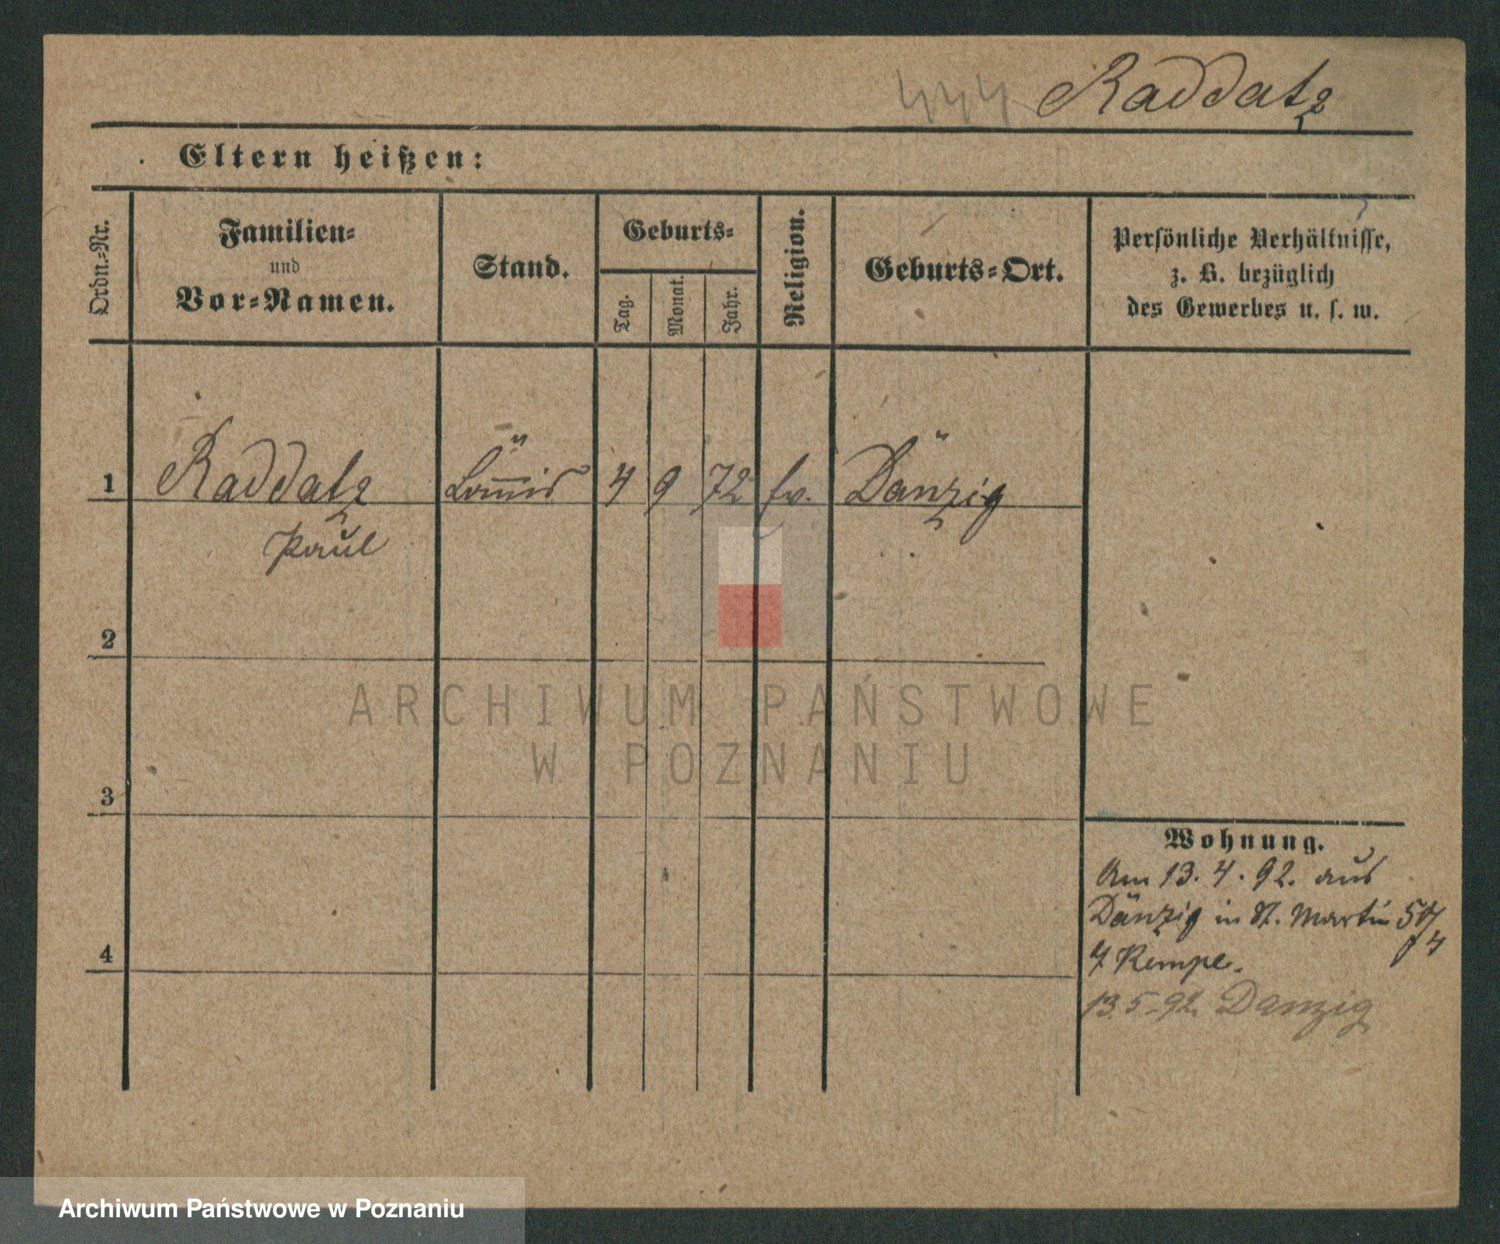 444 Raddatz
Eltern heißen:
Ordn.-Nr.
Familien-
und
Vor-Namen.
Stand.
Geburts-
Tag.
Monat.
Jahr.
Religion.
Geburts-Ort.
Persönliche Verhältnisse,
z. B. bezüglich
des Gewerbes u. s. w.
1 Raddatz 4 9 72 ev. Danzig
Paul
2
3
4
Wohnung.
Am 13.4.92. aus
Danzig in St. Martin
Kempe.
13.5.92. Danzig
ARCHIWUM PAŃSTWOWE
W POZNANIU
Archiwum Państwowe w Poznaniu